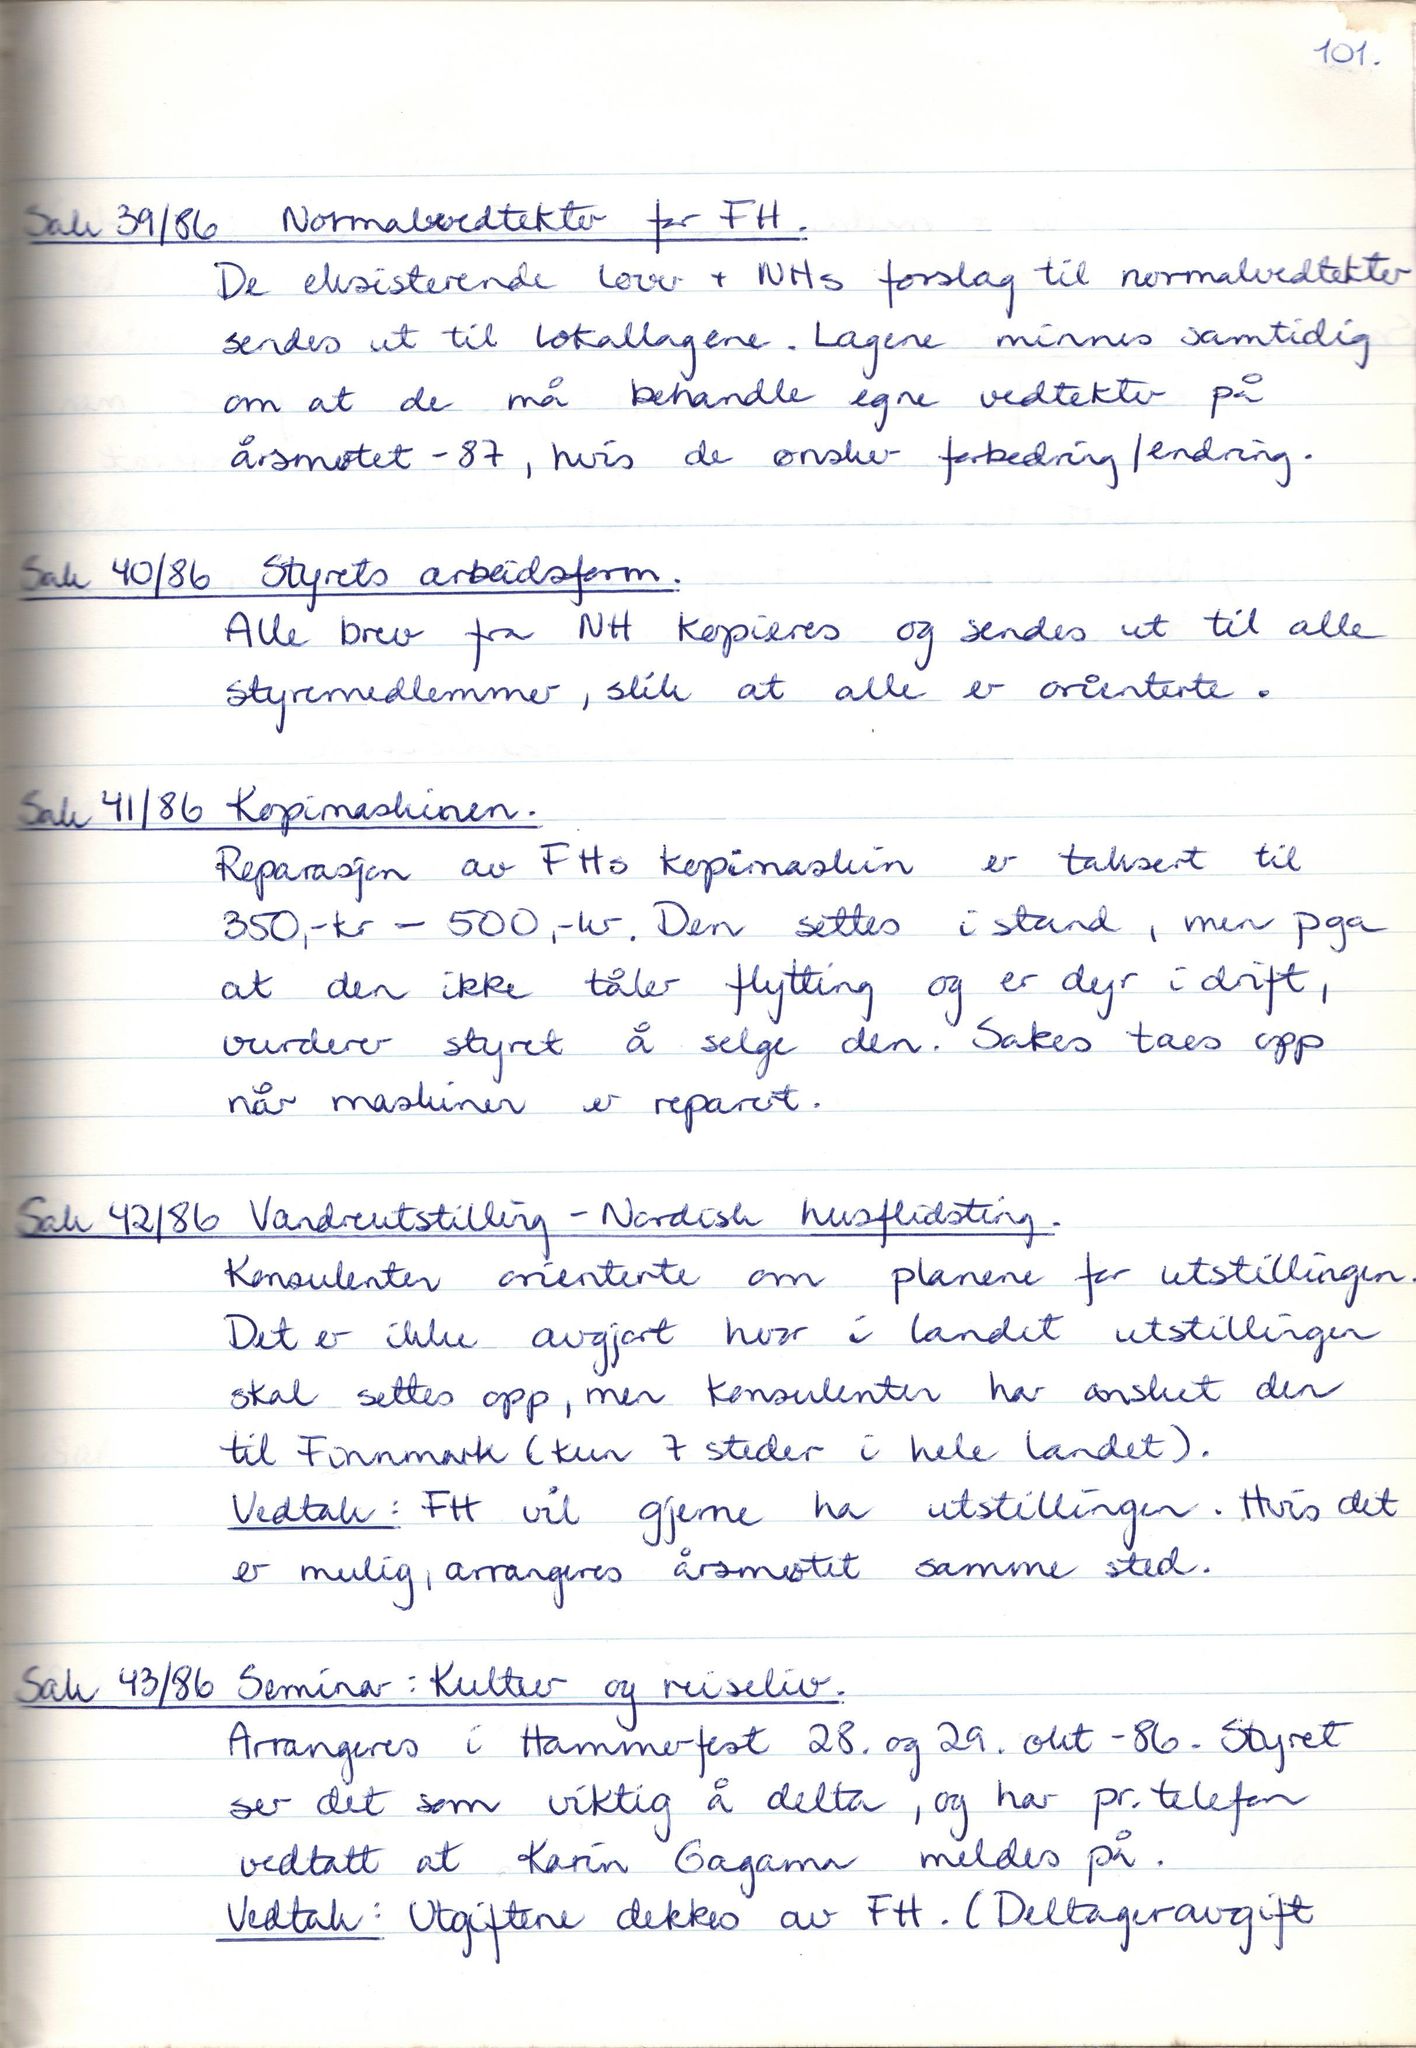 101.
Sak 39/86 Normalvedtekter for FH.
De eksisterende lover + NHs forslag til normalvedtekter
sendes ut til lokallagene. Lagene minnes samtidig
om at de må behandle egne vedtekter på
årsmøtet -87, hvis de ønsker forbedring/endring.
Sak 40/86 Styrets arbeidsform.
Alle brev fra NH kopieres og sendes ut til alle
styremedlemmer, slik at alle er orienterte.
Sak 41/86 Kopimaskinen.
Reparasjon av FHs kopimaskin er taksert til
350,-kr - 500,-kr. Den settes i stand, men pga
at den ikke tåler flytting og er dyr i drift,
vurderer styret å selge den. Sakes taes opp
når maskinen er reparert.
Sak 42/86 Vandreutstilling - Nordisk husflidsting.
Konsulenten orienterte om planene for utstillingen.
Det er ikke avgjort hvor i landet utstillingen
skal settes opp, men konsulenten har ønsket den
til Finnmark (kun 7 steder i hele landet).
Vedtak: FH vil gjerne ha utstillingen. Hvis det
er mulig, arrangeres årsmøtet samme sted.
Sak 43/86 Seminar: Kultur og reiseliv.
Arrangeres i Hammerfest 28. og 29. okt -86. Styret
ser det som viktig å delta, og har pr. telefon
vedtatt at Karin Gagama meldes på.
Vedtak: Utgiftene dekkes av FH. (Deltageravgift